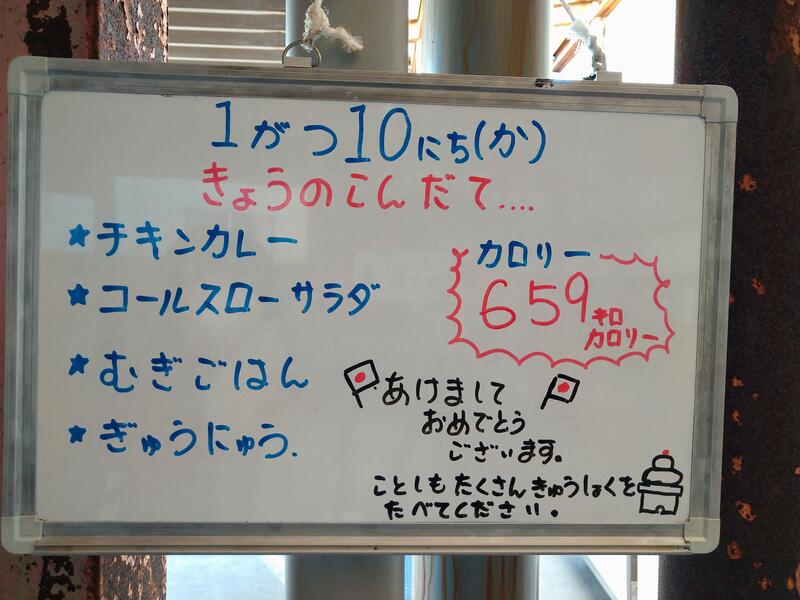 1がつ10にち(か)
きょうのこんだて....
★チキンカレー
★コールスローサラダ
★むぎごはん
★ぎゅうにゅう.
カロリー
659キロ
カロリー
あけまして
おめでとう
ございます。
ことしもたくさんきゅうしょくを
たべてください。